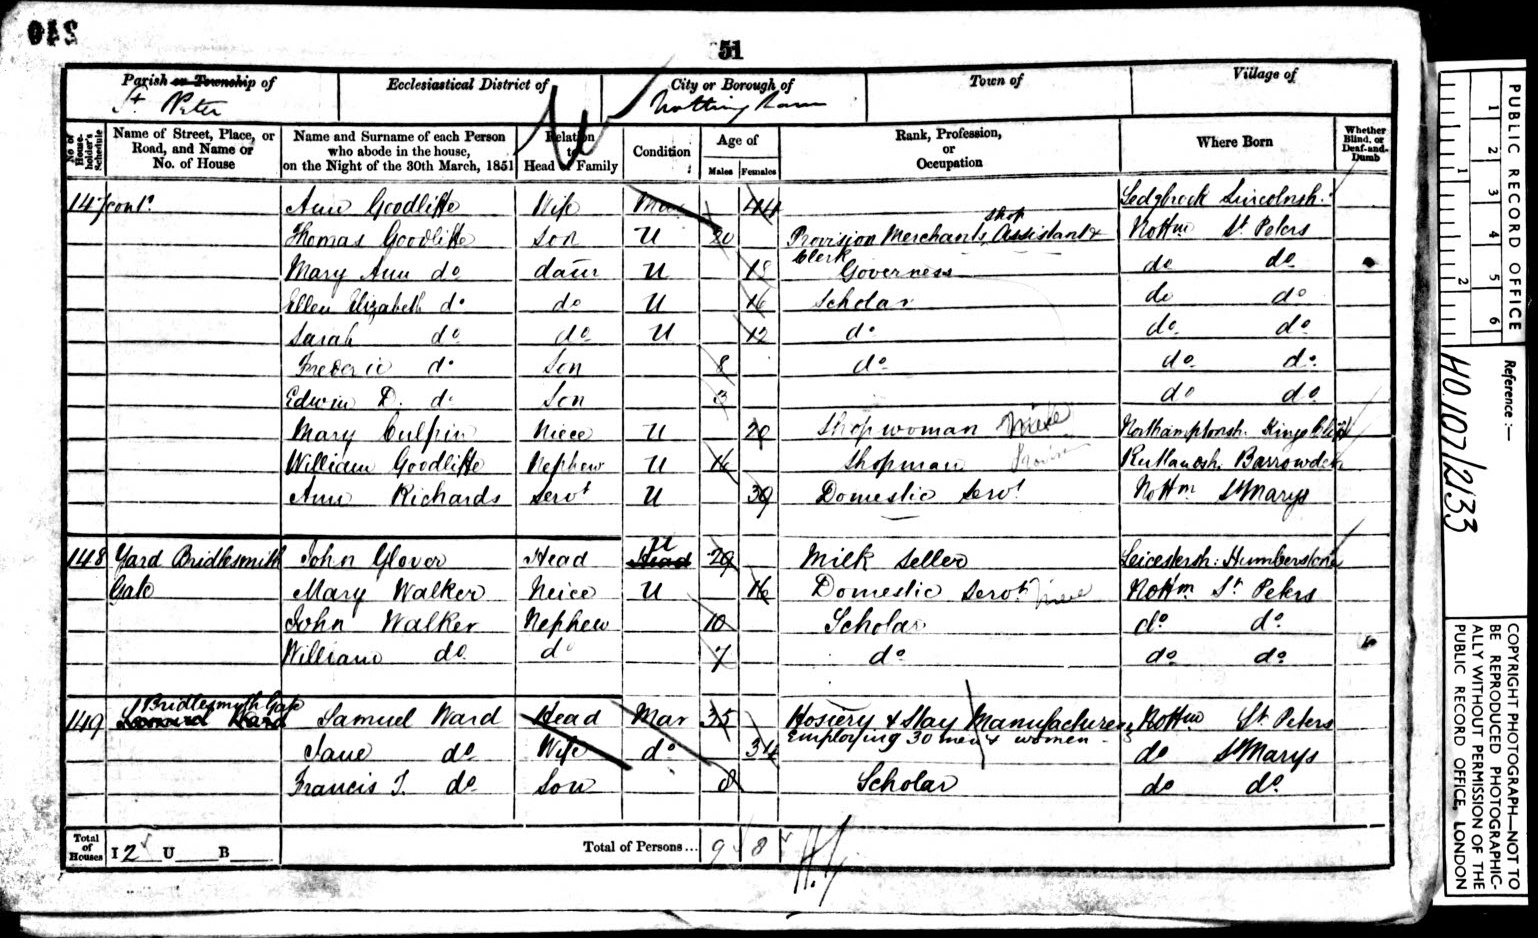 240
51
Parish or Township of
St Peter
Ecclesiastical District of
City or Borough of
Nottingham
Town of
Village of
No of House-holder's Schedule
Name of Street, Place, or Road, and Name or No. of House
Name and Surname of each Person who abode in the house, on the Night of the 30th March, 1851
Relation to Head of Family
Condition
Age of
Males
Females
Rank, Profession, or Occupation
Where Born
Whether Blind, or Deaf-and-Dumb
147 cont. Ann Goodliffe Wife Mar 44 Sedgbrook Lincolnsh.
Thomas Goodliffe Son U 20 Provision Merchants Shop Assistant & Clerk Nottm St Peters
Mary Ann do daur U 18 Governess do do
Ellen Elizabeth do do U 16 Scholar do do
Sarah do do U 12 do do do
Frederic do Son 8 do do do
Edwin D. do Son 3 do do
Mary Culpin Niece U 20 Shopwoman Niece Northamptonsh. Kings Cliff
William Goodliffe Nephew U 16 Shopman Provin Rutlandsh. Barrowden
Ann Richards Servt U 39 Domestic Servt Nottm St Marys
148 Yard Bridlesmith Gate John Glover Head Head U 29 Milk Seller Leicestersh: Humberstone
Mary Walker Neice U 16 Domestic Servt Niece Nottm St Peters
John Walker Nephew 10 Scholar do do
William do do 7 do do do
149 Bridlesmith Gate Samuel Ward Head Mar 35 Hosiery & Stay Manufacturer Nottm St Peters
Employing 30 men & women
Jane do Wife do 34 do St Marys
Francis J. do Son 8 Scholar do do
Total of Houses I 2 U B
Total of Persons... 9 8
PUBLIC RECORD OFFICE
1 2 3 4 5 6
1 2
Reference :—
HO.107/2133
COPYRIGHT PHOTOGRAPH—NOT TO BE REPRODUCED PHOTOGRAPHIC-ALLY WITHOUT PERMISSION OF THE PUBLIC RECORD OFFICE, LONDON